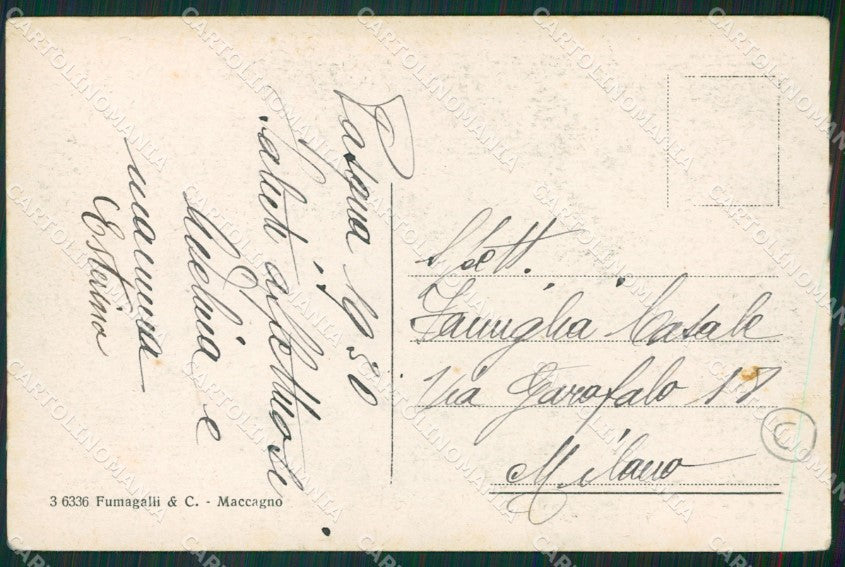 Pasqua 1930
Saluti affettuosi
e
mamma
Esterina
Spett.
Famiglia Casale
Via Garofalo 17
Milano
C
3 6336 Fumagalli & C. - Maccagno
CARTOLINOMANIA